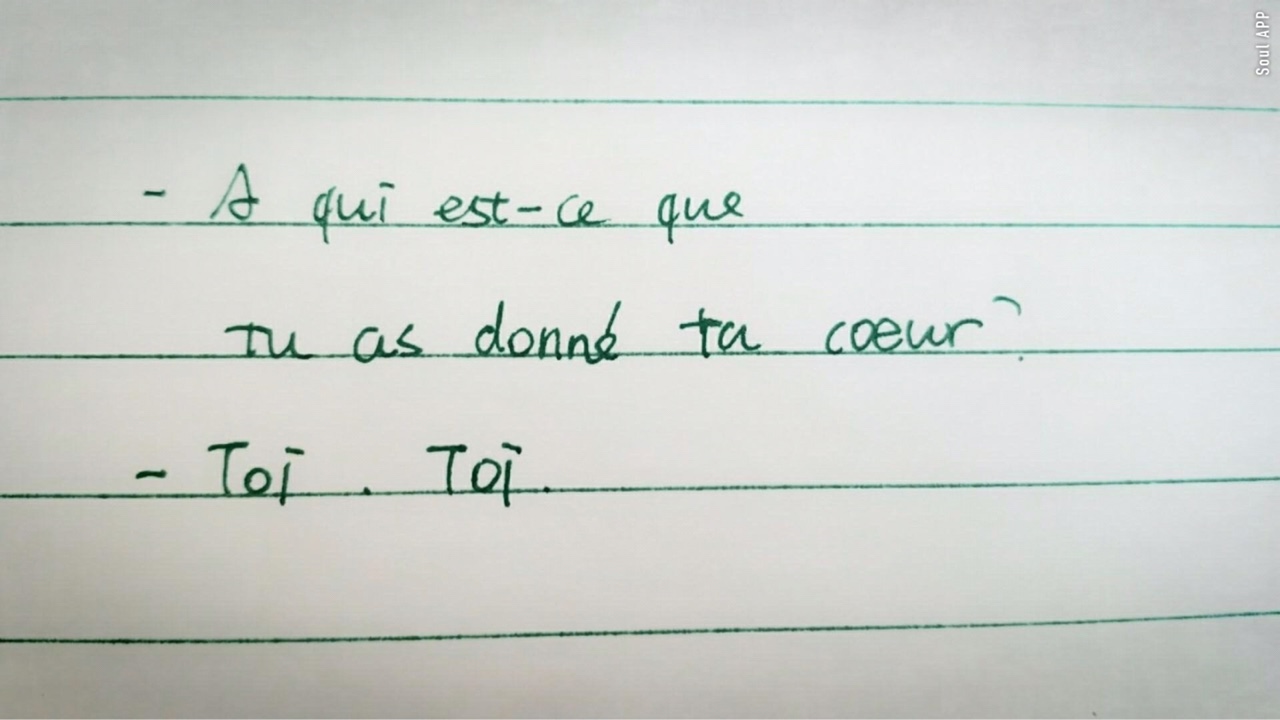 - A qui est-ce que
tu as donné ta coeur?
- Toi. Toi.
Soul APP